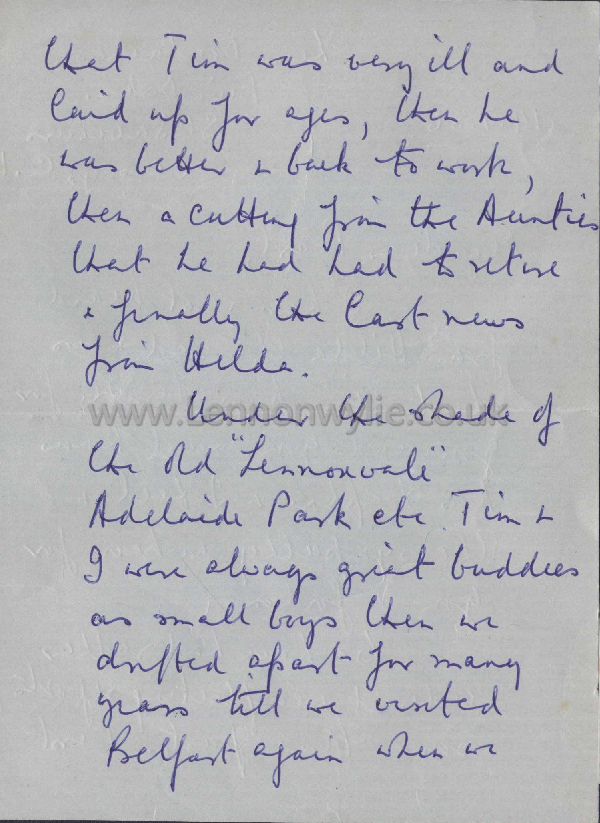 that Tim was very ill and
laid up for ages, then he
was better & back to work,
then a cutting from the Aunties
that he had had to retire
& finally the last news
from Hilda.
www.Lennonwylie.co.uk
Under the shade of
the old "Lennonvale"
Adelaide Park etc. Tim &
I were always great buddies
as small boys then we
drifted apart for many
years till we visited
Belfast again when we